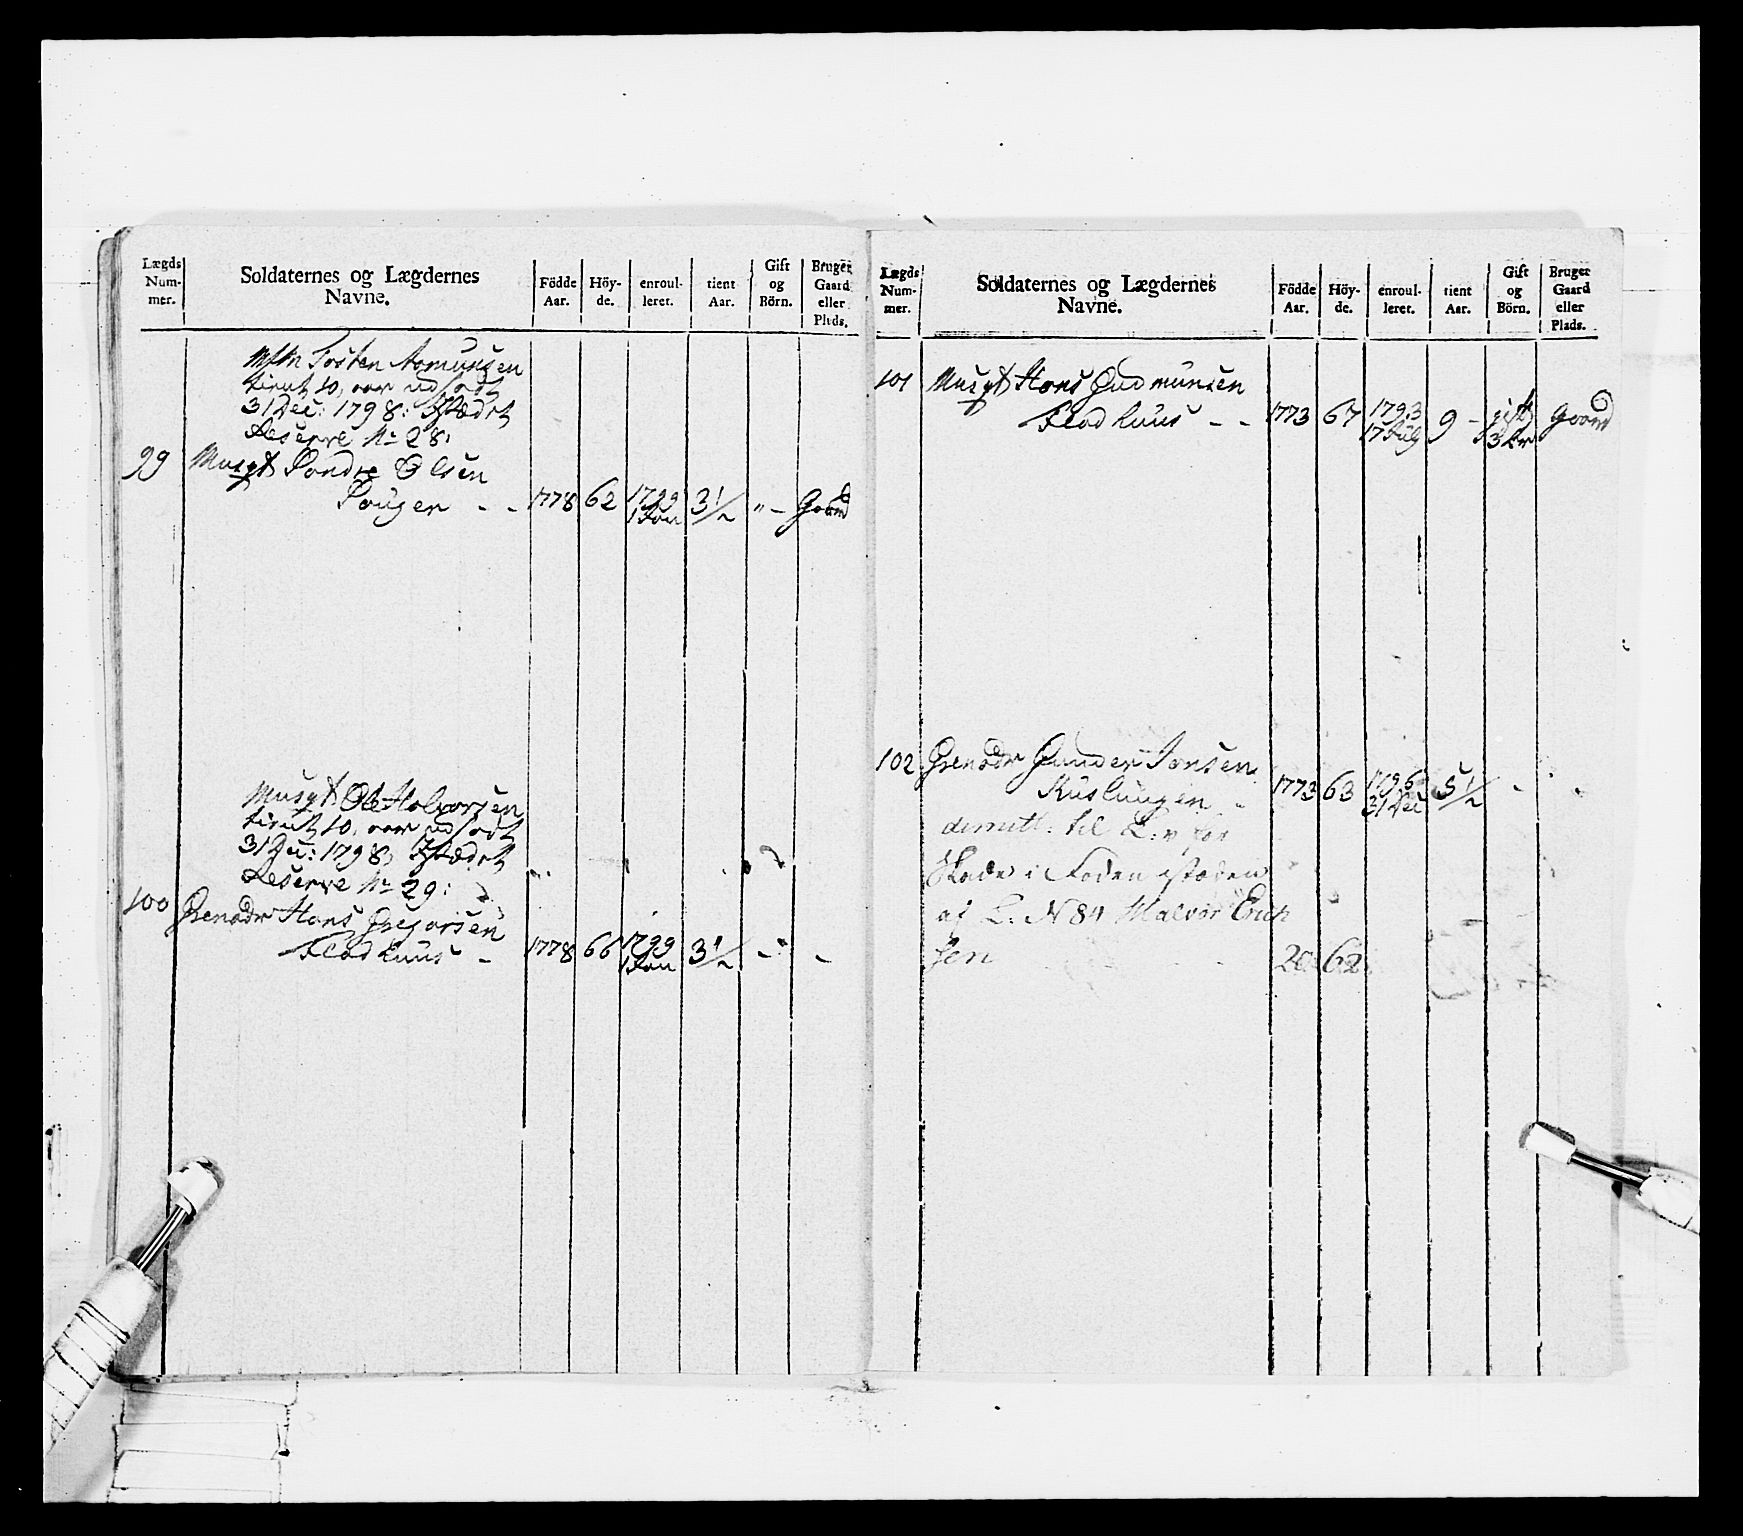 Lægds Num- mer.
Soldaternes og Lægdernes Navne.
Födde Aar.
Höy- de.
enroul- leret.
tient Aar.
Gift og Börn.
Bruger Gaard eller Plads.
Tosten Asmunsen
tient 10, aar udsadt
31 Dec: 1798:
Reserve No 28:
99 Musqt Sondre Olsen
1778 62 1799 1 Jan 3 1/2 " - Gaard
Musqt Ole Halvorsen
tient 10, aar udsadt
31 Dec: 1798,
Reserve No 29:
100 Grenadr Hans Gregorsen
Fladhuus - 1778 66 1799 1 Jan 3 1/2 - " -
Lægds Num- mer.
Soldaternes og Lægdernes Navne.
Födde Aar.
Höy- de.
enroul- leret.
tient Aar.
Gift og Börn.
Bruger Gaard eller Plads.
101 Musqt Hans Gudmunsen
Fladhuus - - 1773 67 1793 17 July 9 - gift 3 Gaard
102 Grenadr Gunder Jonsen
1773 63 1796 31 Dec 5 1/2
dimitt: til L:v for
Skade i Foden istæden
af L: N 84 Halvor Erich
sen 20 62